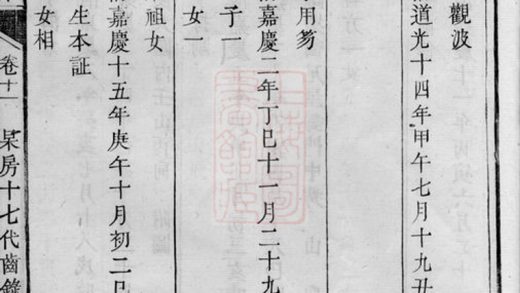 道光十四年甲午七月十九丑
觀波
用笏
嘉慶二年丁巳十一月二十九
子一
女一
祖女
嘉慶十五年庚午十月初二巳
生本証
女相
卷十一 杲房十七代齒錄